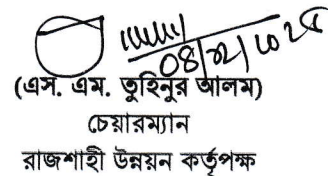 ০৪/০২/২০২৫
(এস. এম. তুহিনুর আলম)
চেয়ারম্যান
রাজশাহী উন্নয়ন কর্তৃপক্ষ